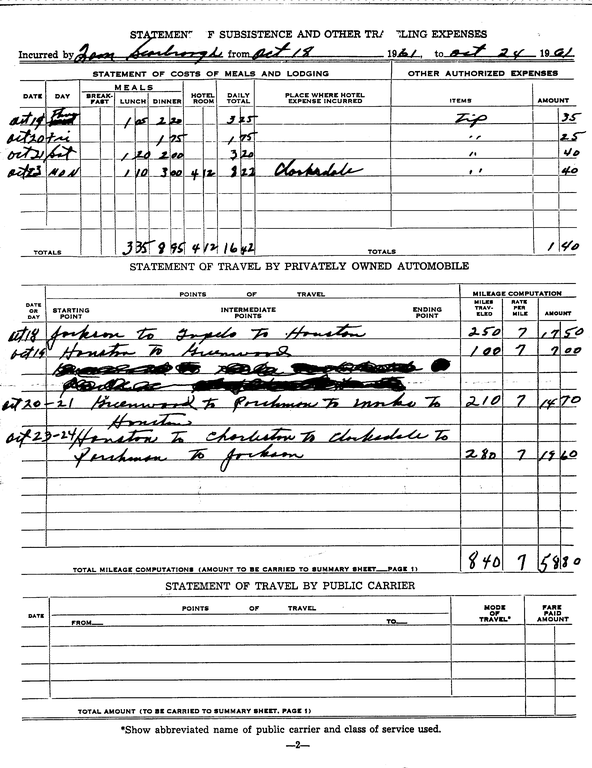 STATEMENT OF SUBSISTENCE AND OTHER TRAVELING EXPENSES
Incurred by Tom Scarbrough from Oct 18 1961, to Oct 24 1961
STATEMENT OF COSTS OF MEALS AND LODGING OTHER AUTHORIZED EXPENSES
DATE DAY MEALS BREAK-FAST LUNCH DINNER HOTEL ROOM DAILY TOTAL PLACE WHERE HOTEL EXPENSE INCURRED ITEMS AMOUNT
Oct 19 Thur 1 05 2 20 3 25 Tip 35
Oct 20 Fri 1 75 1 75 " 25
Oct 21 Sat 1 20 2 00 3 20 " 40
Oct 23 MON 1 10 3 00 4 12 8 22 Clarksdale " 40
TOTALS 3 35 8 95 4 12 16 42 TOTALS 1 40
STATEMENT OF TRAVEL BY PRIVATELY OWNED AUTOMOBILE
POINTS OF TRAVEL MILEAGE COMPUTATION
DATE OR DAY STARTING POINT INTERMEDIATE POINTS ENDING POINT MILES TRAV-ELED RATE PER MILE AMOUNT
Oct 18 Jackson to Tupelo to Houston 250 7 17 50
Oct 19 Houston to Greenwood 100 7 7 00
Oct 20-21 Greenwood to Parchman to Marks to 210 7 14 70
Houston
Oct 23-24 Houston to Charleston to Clarksdale to
Parchman to Jackson 280 7 19 60
TOTAL MILEAGE COMPUTATIONS (AMOUNT TO BE CARRIED TO SUMMARY SHEET—PAGE 1) 840 7 58 80
STATEMENT OF TRAVEL BY PUBLIC CARRIER
DATE POINTS OF TRAVEL MODE OF TRAVEL* FARE PAID AMOUNT
FROM— TO—
TOTAL AMOUNT (TO BE CARRIED TO SUMMARY SHEET, PAGE 1)
*Show abbreviated name of public carrier and class of service used.
—2—